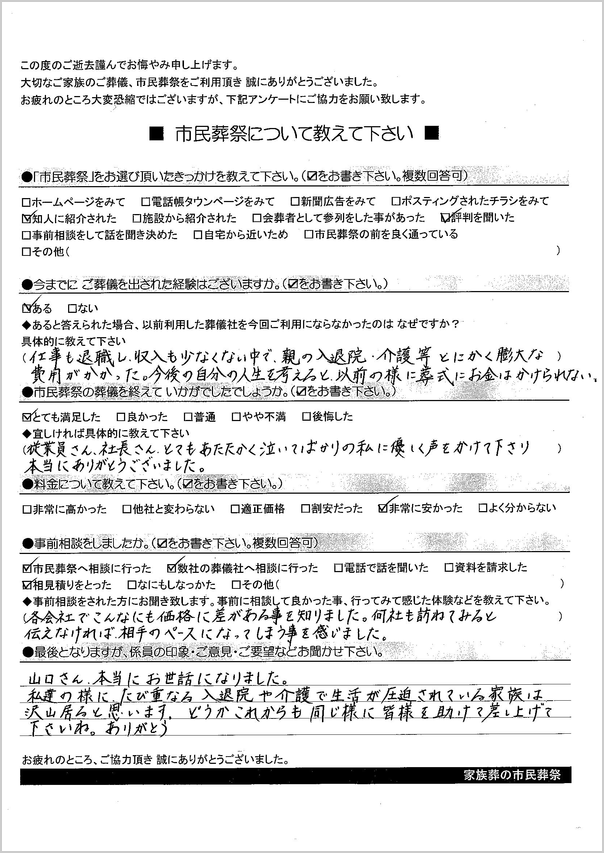 この度のご逝去謹んでお悔やみ申し上げます。
大切なご家族のご葬儀、市民葬祭をご利用頂き 誠にありがとうございました。
お疲れのところ大変恐縮ではございますが、下記アンケートにご協力をお願い致します。
■ 市民葬祭について教えて下さい ■
●「市民葬祭」をお選び頂いたきっかけを教えて下さい。(☑をお書き下さい。複数回答可)
□ホームページをみて □電話帳タウンページをみて □新聞広告をみて □ポスティングされたチラシをみて
☑知人に紹介された □施設から紹介された □会葬者として参列をした事があった ☑評判を聞いた
□事前相談をして話を聞き決めた □自宅から近いため □市民葬祭の前を良く通っている
□その他( )
●今までに ご葬儀を出された経験はございますか。(☑をお書き下さい。)
☑ある □ない
◆あると答えられた場合、以前利用した葬儀社を今回ご利用にならなかったのは なぜですか?
具体的に教えて下さい
(仕事も退職し、収入も少なくない中で、親の入退院・介護等とにかく膨大な )
費用がかかった。今後の自分の人生を考えると、以前の様に葬式にお金はかけられない。
●市民葬祭の葬儀を終えて いかがでしたでしょうか。(☑をお書き下さい。)
☑とても満足した □良かった □普通 □やや不満 □後悔した
◆宜しければ具体的に教えて下さい
(従業員さん、社長さん、とてもあたたかく泣いてばかりの私に優しく声をかけて下さり )
本当にありがとうございました。
●料金について教えて下さい。(☑をお書き下さい。)
□非常に高かった □他社と変わらない □適正価格 □割安だった ☑非常に安かった □よく分からない
●事前相談をしましたか。(☑をお書き下さい。複数回答可)
☑市民葬祭へ相談に行った ☑数社の葬儀社へ相談に行った □電話で話を聞いた □資料を請求した
☑相見積りをとった □なにもしなっかた □その他( )
◆事前相談をされた方にお聞き致します。事前に相談して良かった事、行ってみて感じた体験などを教えて下さい。
(各会社でこんなにも価格に差がある事を知りました。何社も訪ねてみると )
伝えなければ、相手のペースになってしまう事を感じました。
●最後となりますが、係員の印象・ご意見・ご要望などお聞かせ下さい。
山口さん、本当にお世話になりました。
私達の様に、たび重なる入退院や介護で生活が圧迫されている家族は
沢山居ると思います。どうかこれからも同じ様に皆様を助けて差し上げて
下さいね。ありがとう
お疲れのところ、ご協力頂き 誠にありがとうございました。
家族葬の市民葬祭